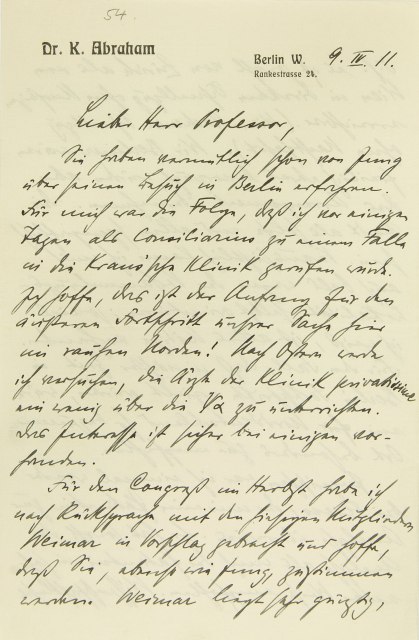 54.
Dr. K. Abraham
Berlin W. 9. IV. 11.
Rankestrasse 24.
Lieber Herr Professor,
Sie haben vermutlich schon von Jung
über seinen Besuch in Berlin erfahren.
Für mich war die Folge, daß ich vor einigen
Tagen als Consiliarius zu einem Falle
in die Kraus'sche Klinik gerufen wurde.
Ich hoffe, das ist der Anfang für den
äußeren Fortschritt unsrer Sache hier
im rauhen Norden! Nach Ostern werde
ich versuchen, die Ärzte der Klinik privatissime
ein wenig über die ΨΑ zu unterrichten.
Das Interesse ist sicher bei einigen vor-
handen.
Für den Congreß im Herbst habe ich
nach Rücksprache mit den hiesigen Mitgliedern
Weimar in Vorschlag gebracht und hoffe,
daß Sie, ebenso wie Jung, zustimmen
werden. Weimar liegt sehr günstig,